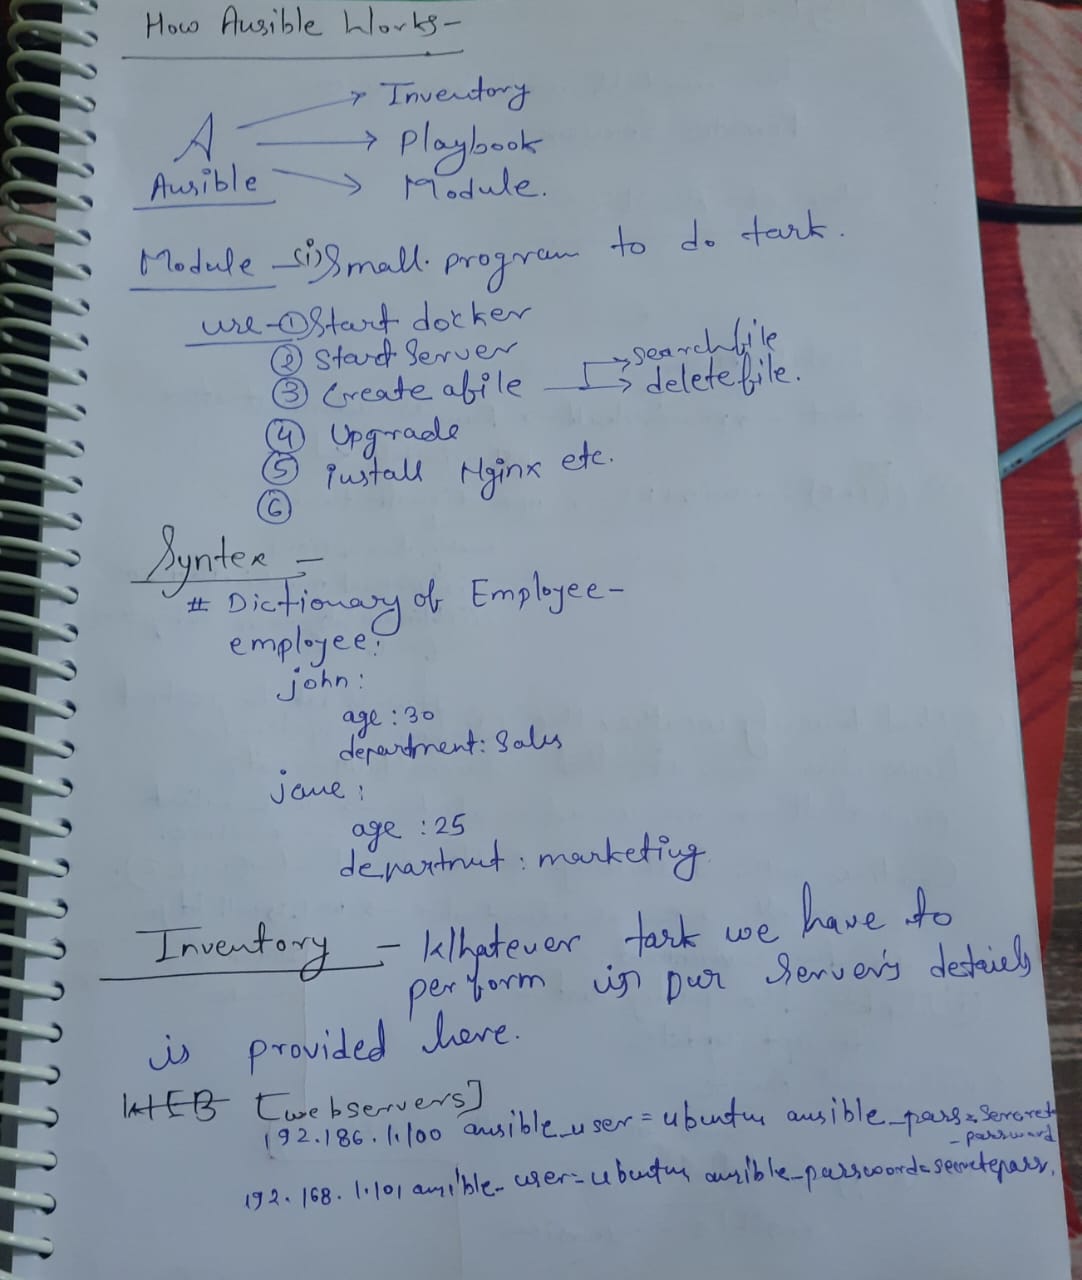 How Ansible Works-
A → Inventory
→ Playbook
Ansible → Module.
Module - (i) Small program to do task.
use - ① Start docker
② Start Server
③ Create a file → search file
→ delete file.
④ Upgrade
⑤ install Nginx etc.
⑥
Syntex -
# Dictionary of Employee-
employee:
john:
age : 30
department: Sales
jane :
age : 25
departmnt : marketing
Inventory - Whatever task we have to
perform in our server's details
is provided here.
WEB [webservers]
192.186.1.100 ansible_user = ubuntu ansible_pass=
-password
192.168.1.101 ansible-user=ubuntu ansible_password=secretepass.